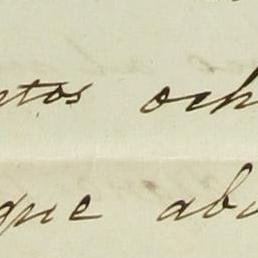 ntos och
que abu